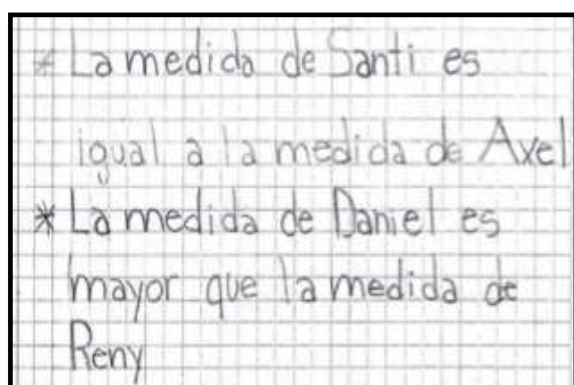 * La medida de Santi es
igual a la medida de Axel
* La medida de Daniel es
mayor que la medida de
Reny